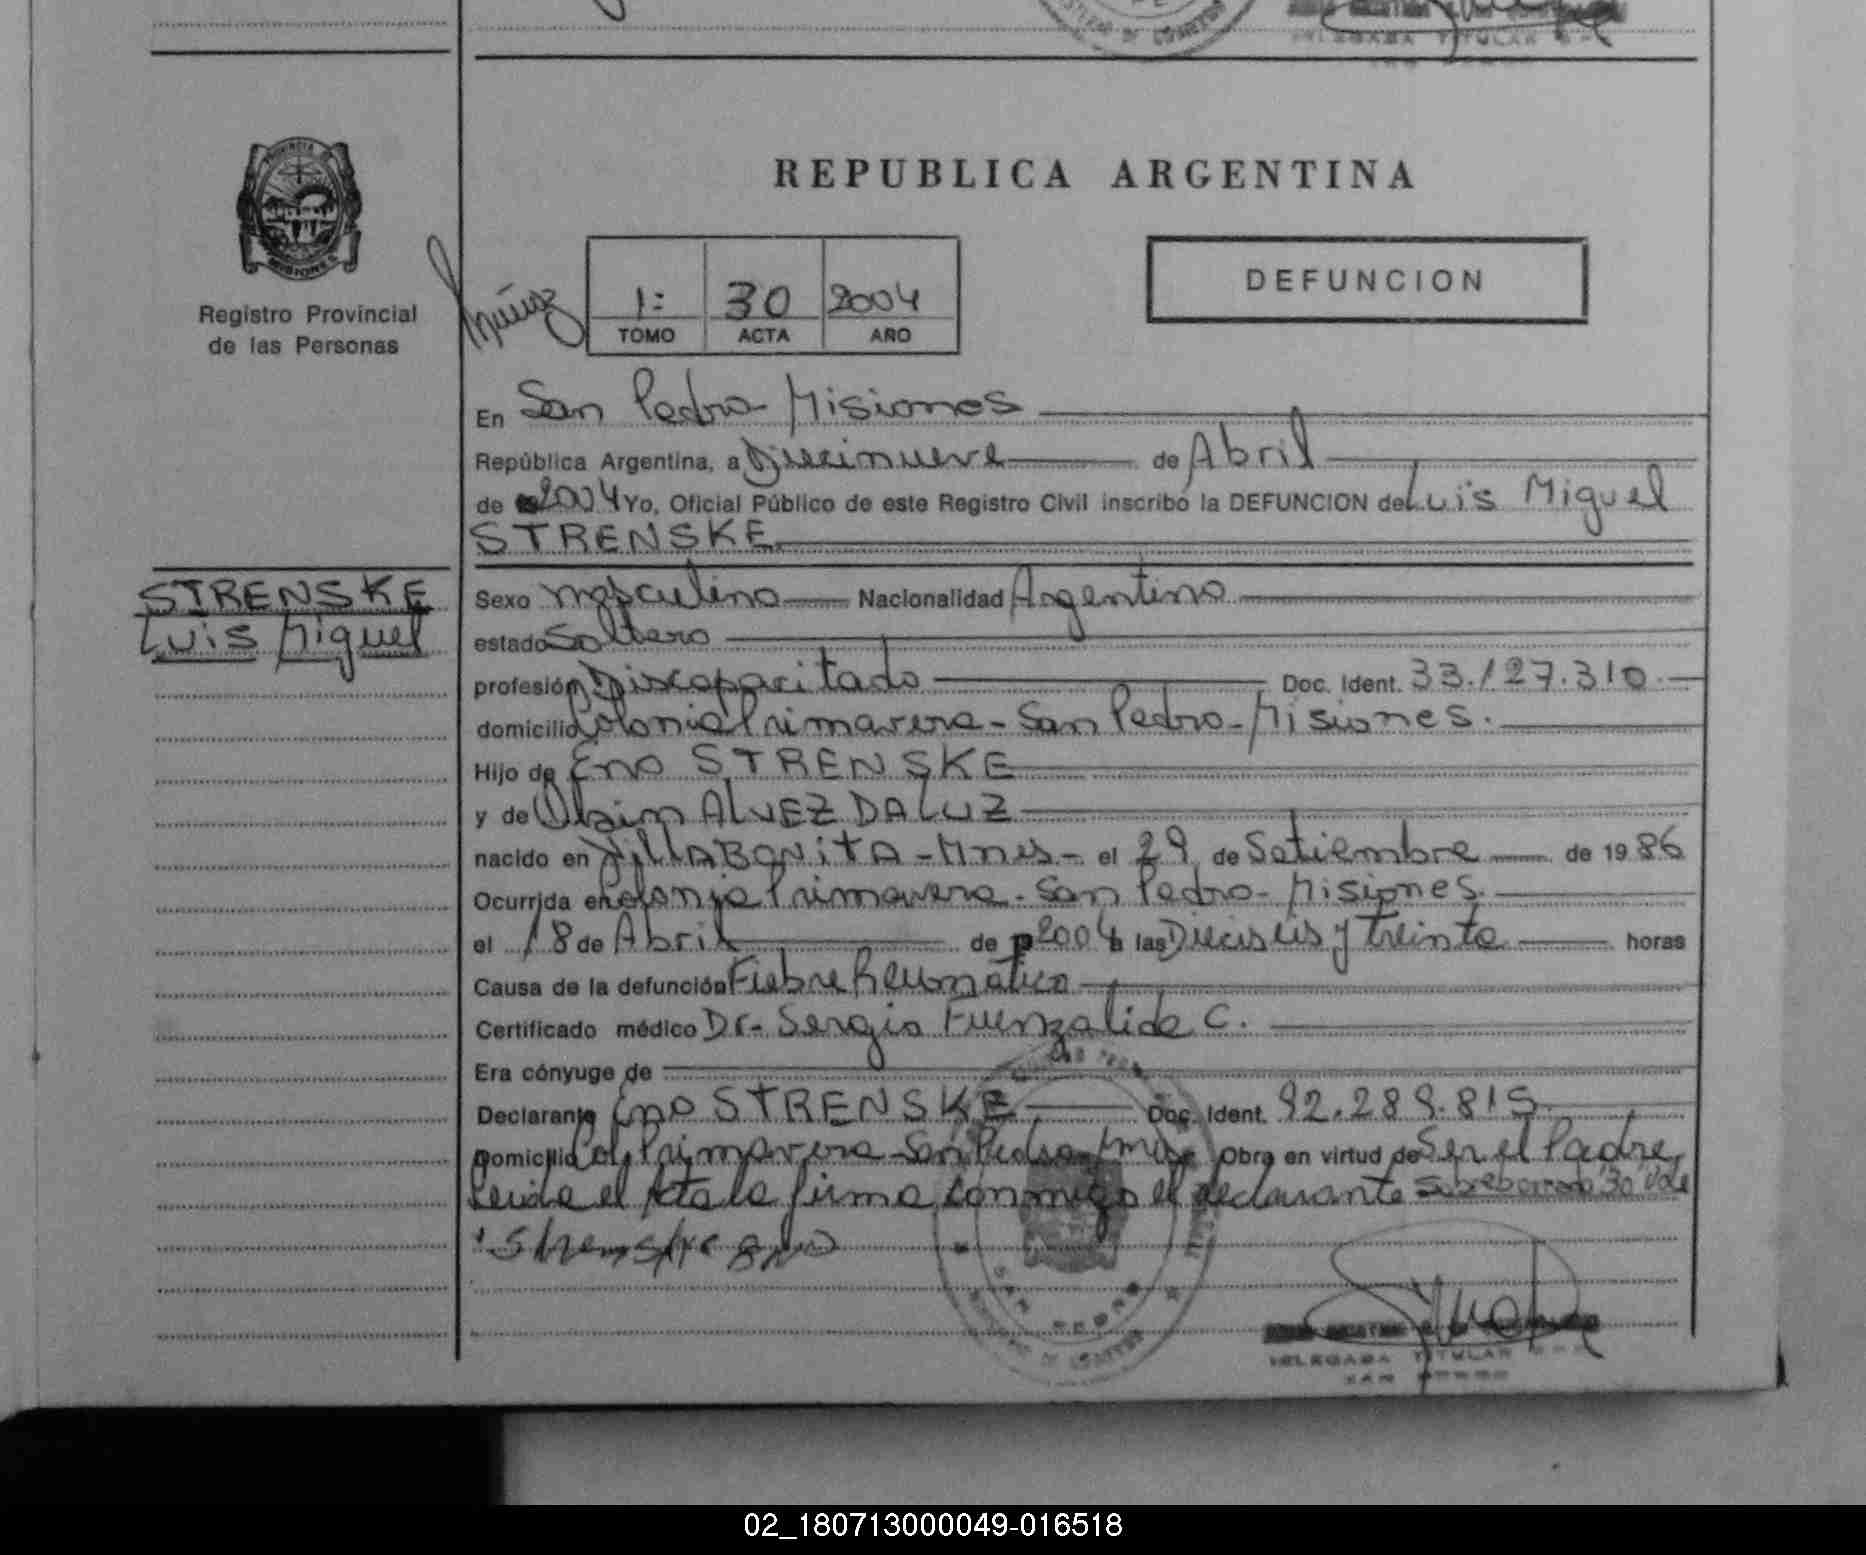 PROVINCIA DE
MISIONES
Registro Provincial
de las Personas
REPUBLICA ARGENTINA
1: 30 2004
TOMO ACTA AÑO
DEFUNCION
En San Pedro - Misiones
República Argentina, a Diecinueve de Abril
de 2004 Yo, Oficial Público de este Registro Civil inscribo la DEFUNCION de Luis Miguel
STRENSKE
STRENSKE
Luis Miguel
Sexo masculino Nacionalidad Argentino
estado Soltero
profesión Discapacitado Doc. Ident. 33.127.310.
domicilio Colonia Primavera - San Pedro - Misiones.
Hijo de Eno STRENSKE
y de ALVEZ DA LUZ
nacido en Villa BONITA - Mnes - el 29 de Setiembre de 1986
Ocurrida en Colonia Primavera - San Pedro - Misiones.
el 18 de Abril de 2004 a las Dieciseis y treinta horas
Causa de la defunción Fiebre Reumática
Certificado médico Dr. Sergio Fuenzalida C.
Era cónyuge de
Declarante Eno STRENSKE Doc. Ident. 92.289.815
Domicilio Col. Primavera - San Pedro - Mnes Obra en virtud de Ser el Padre,
Leida el Acta la firma conmigo el declarante Sobreborrado 30 Vale
Strenske eno
SAN PEDRO
DELEGADA TITULAR
SAN PEDRO
02_180713000049-016518